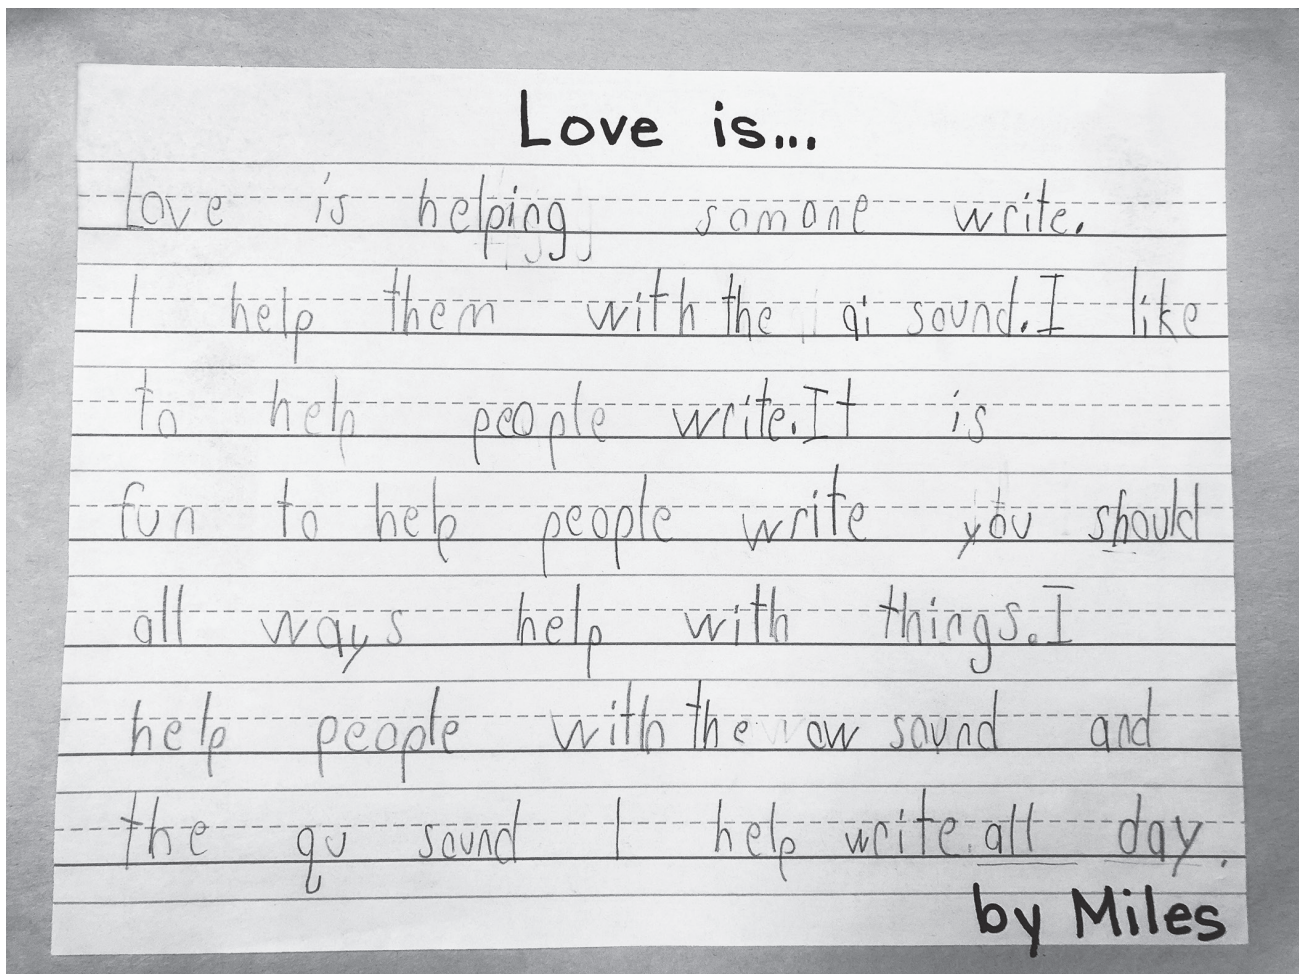 Love is...
Love is helping somone write.
I help them with the qi sound. I like
to help people write. It is
fun to help people write you should
all ways help with things. I
help people with the ow sound and
the qu sound I help write. all day.
by Miles